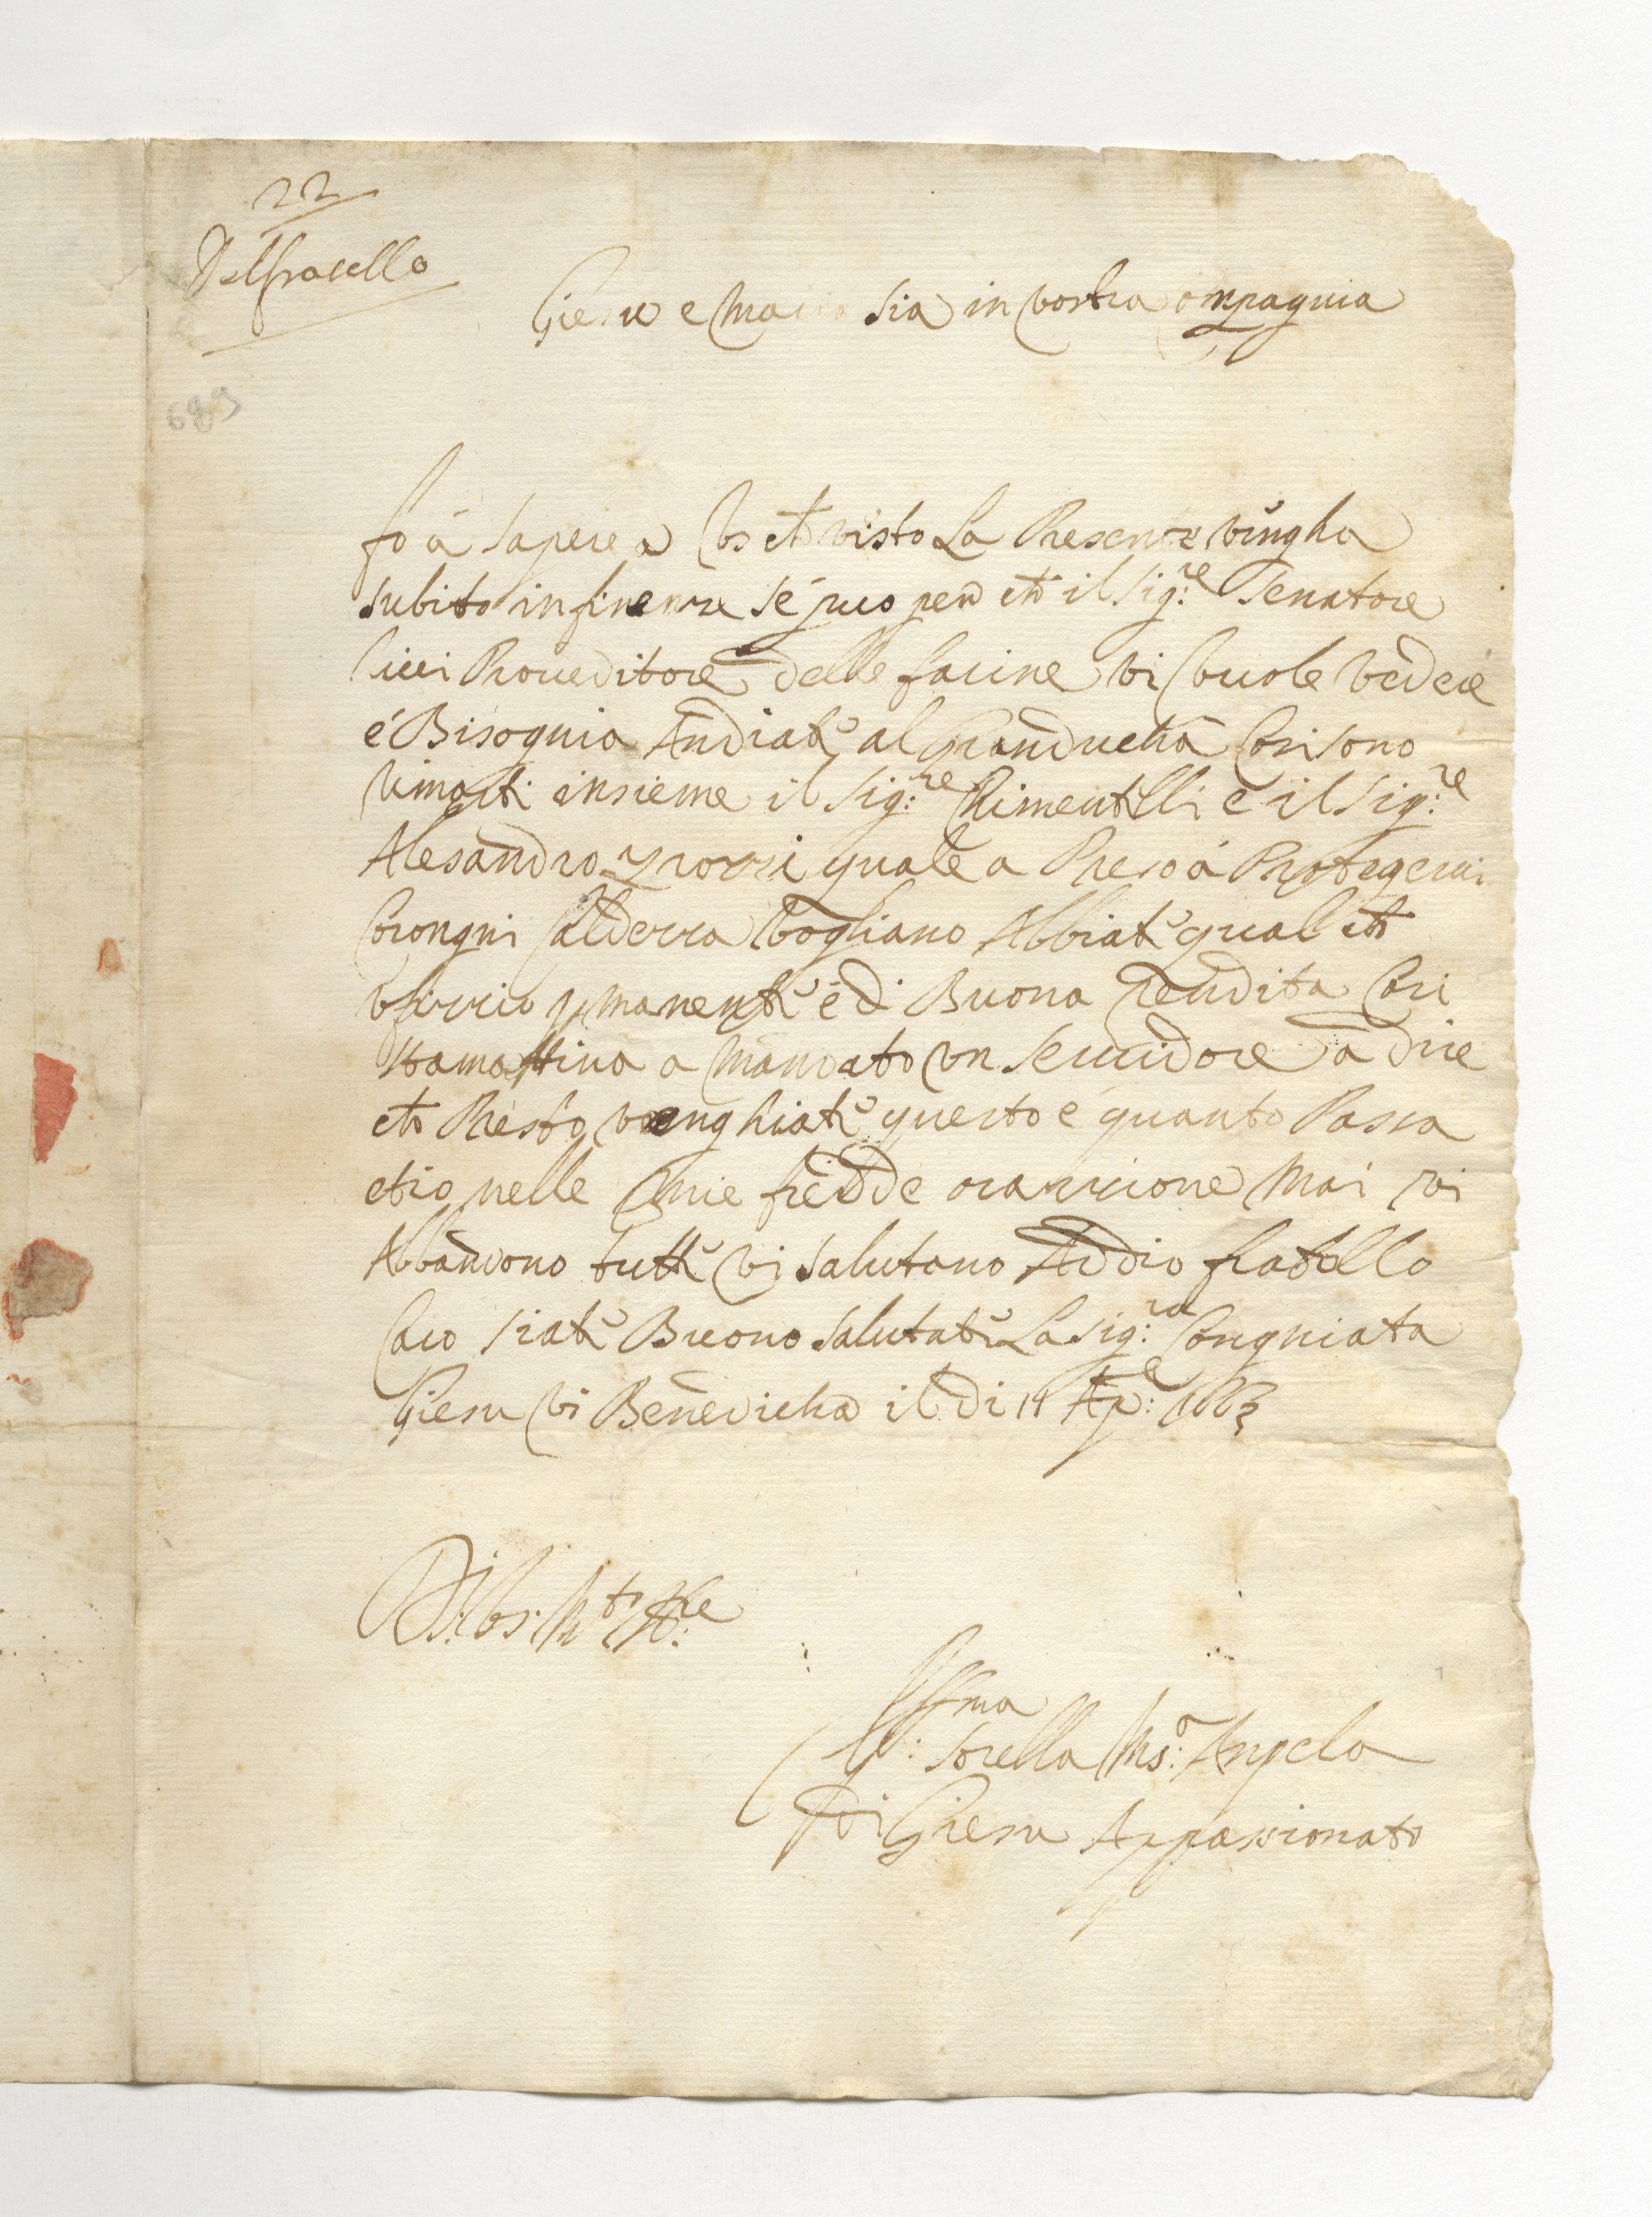 22
Del fratello
689
Giesu e Maria sia in vostra compagnia
fo á sapere a Vs ch visto La Presente vengha
subito in firenze sé puo però ch il Sig:re Senatore
Proueditore delle farine vi vuole vedere
é Bisognia Andiate al Granducha Cosi sono
rimasti insieme il Sig:re Pimentelli e il Sig:re
Alesandro quale a Preso á Protegerui
vogliano Abbiate qual ch
vfizzio p manente é di Buona Rendita Cosi
stamattina a Mandato vn Seruidore a dire
ch Presto venghiate questo e quanto Passa
ch io nelle mie fredde orazzione Mai vi
Abbandono tutti vi salutano Addio fratello
Caro siate Buono salutate La Sig:ra Congniata
Giesu vi Benedicha il di 14 Ap:e 1663
Di Vs: M.to Ill:re
Aff.ma
Sorella Ma: Angela
Di Giesu Appassionato